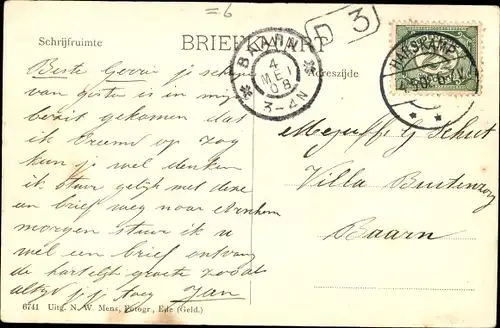 =6
D 3
Schrijfruimte
BRIEFKAART
Adreszijde
BAARN
4
MEI
08
3-4N
HARSKAMP
Beste Gerrie je schrijven
van gisteren is in mijn
bezit gekomen dat
ik vreemd op zag
kun je wel denken
ik stuur gelijk met deze
een brief weg naar Arnhem
morgen stuur ik u
wel een brief ontvang
de hartelijk groete zooals
altijd Jan
Mejuffr G Schut
Villa Buitenzorg
Baarn
6741 Uitg. N. W. Mens, Fotogr., Ede (Geld.)